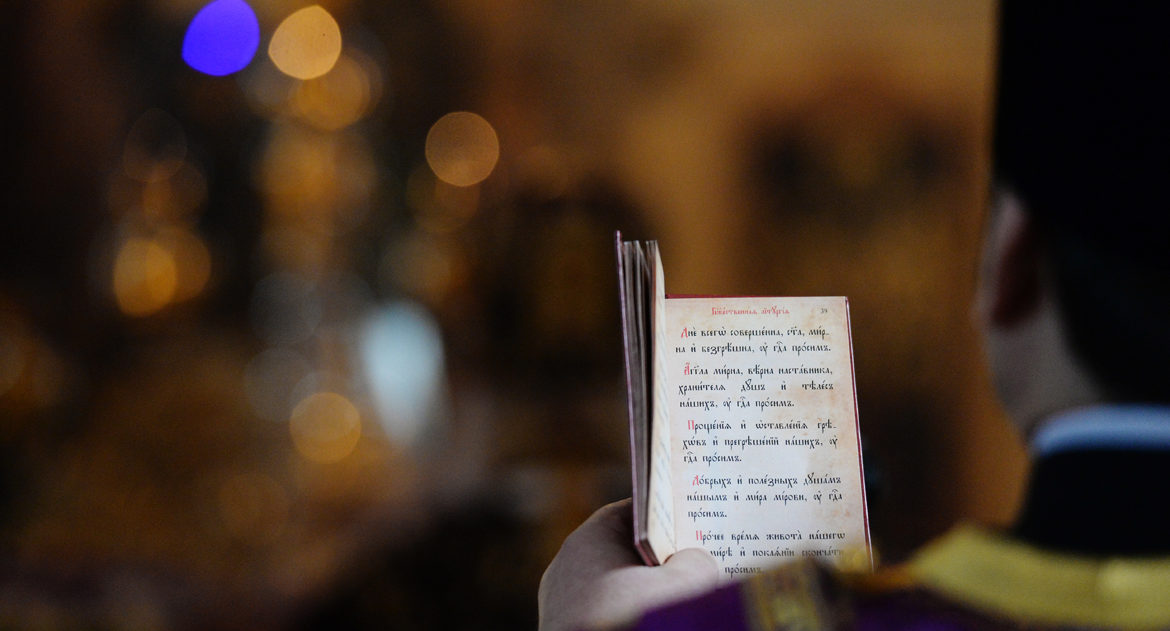 Бжⷭ҇твеннаѧ лїтꙋргі́а 39
Днѐ всегѡ̀ соверше́нна, ст҃а, ми́р-
на и҆ безгрѣ́шна, ᲂу҆ гдⷭ҇а про́симъ.
А҆́гг҃ла ми́рна, вѣ́рна наста́вника,
храни́телѧ дꙋ́шъ и҆ тѣле́съ
на́шихъ, ᲂу҆ гдⷭ҇а про́симъ.
Проще́нїѧ и҆ ѡ҆ставле́нїѧ грѣ-
хѡ́въ и҆ прегрѣше́нїй на́шихъ, ᲂу҆
гдⷭ҇а про́симъ.
До́брыхъ и҆ поле́зныхъ дꙋша́мъ
на́шымъ и҆ ми́ра мі́рови, ᲂу҆ гдⷭ҇а
про́симъ.
Про́чее вре́мѧ живота̀ на́шегѡ
ми́рѣ и҆ покаѧ́нїи сконча́ти
про́симъ.